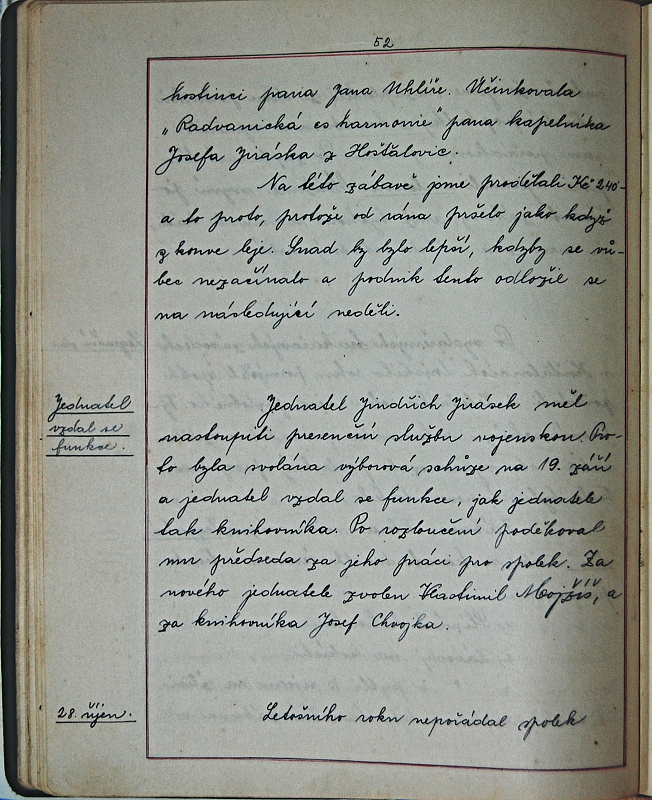 52
hostinci pana Jana Uhlíře. Účinkovala
„Radvanická es harmonie" pana kapelníka
Josefa Jiráska z Hošťalovic.
Na této zábavě jsme prodělali Kč 240-
a to proto, protože od rána pršelo jako když
z konve leje. Snad by bylo lepší, kdyby se vů-
bec nezačínalo a podnik tento odložil se
na následující neděli.
Jednatel
vzdal se
funkce.
Jednatel Jindřich Jirásek měl
nastoupiti presenční službu vojenskou. Pro-
to byla svolána výborová schůze na 19. září
a jednatel vzdal se funkce, jak jednatele
tak knihovníka. Po rozloučení poděkoval
mu předseda za jeho práci pro spolek. Za
nového jednatele zvolen Vlastimil Mojžíš, a
za knihovníka Josef Chvojka.
28. říjen.
Letošního roku nepořádal spolek